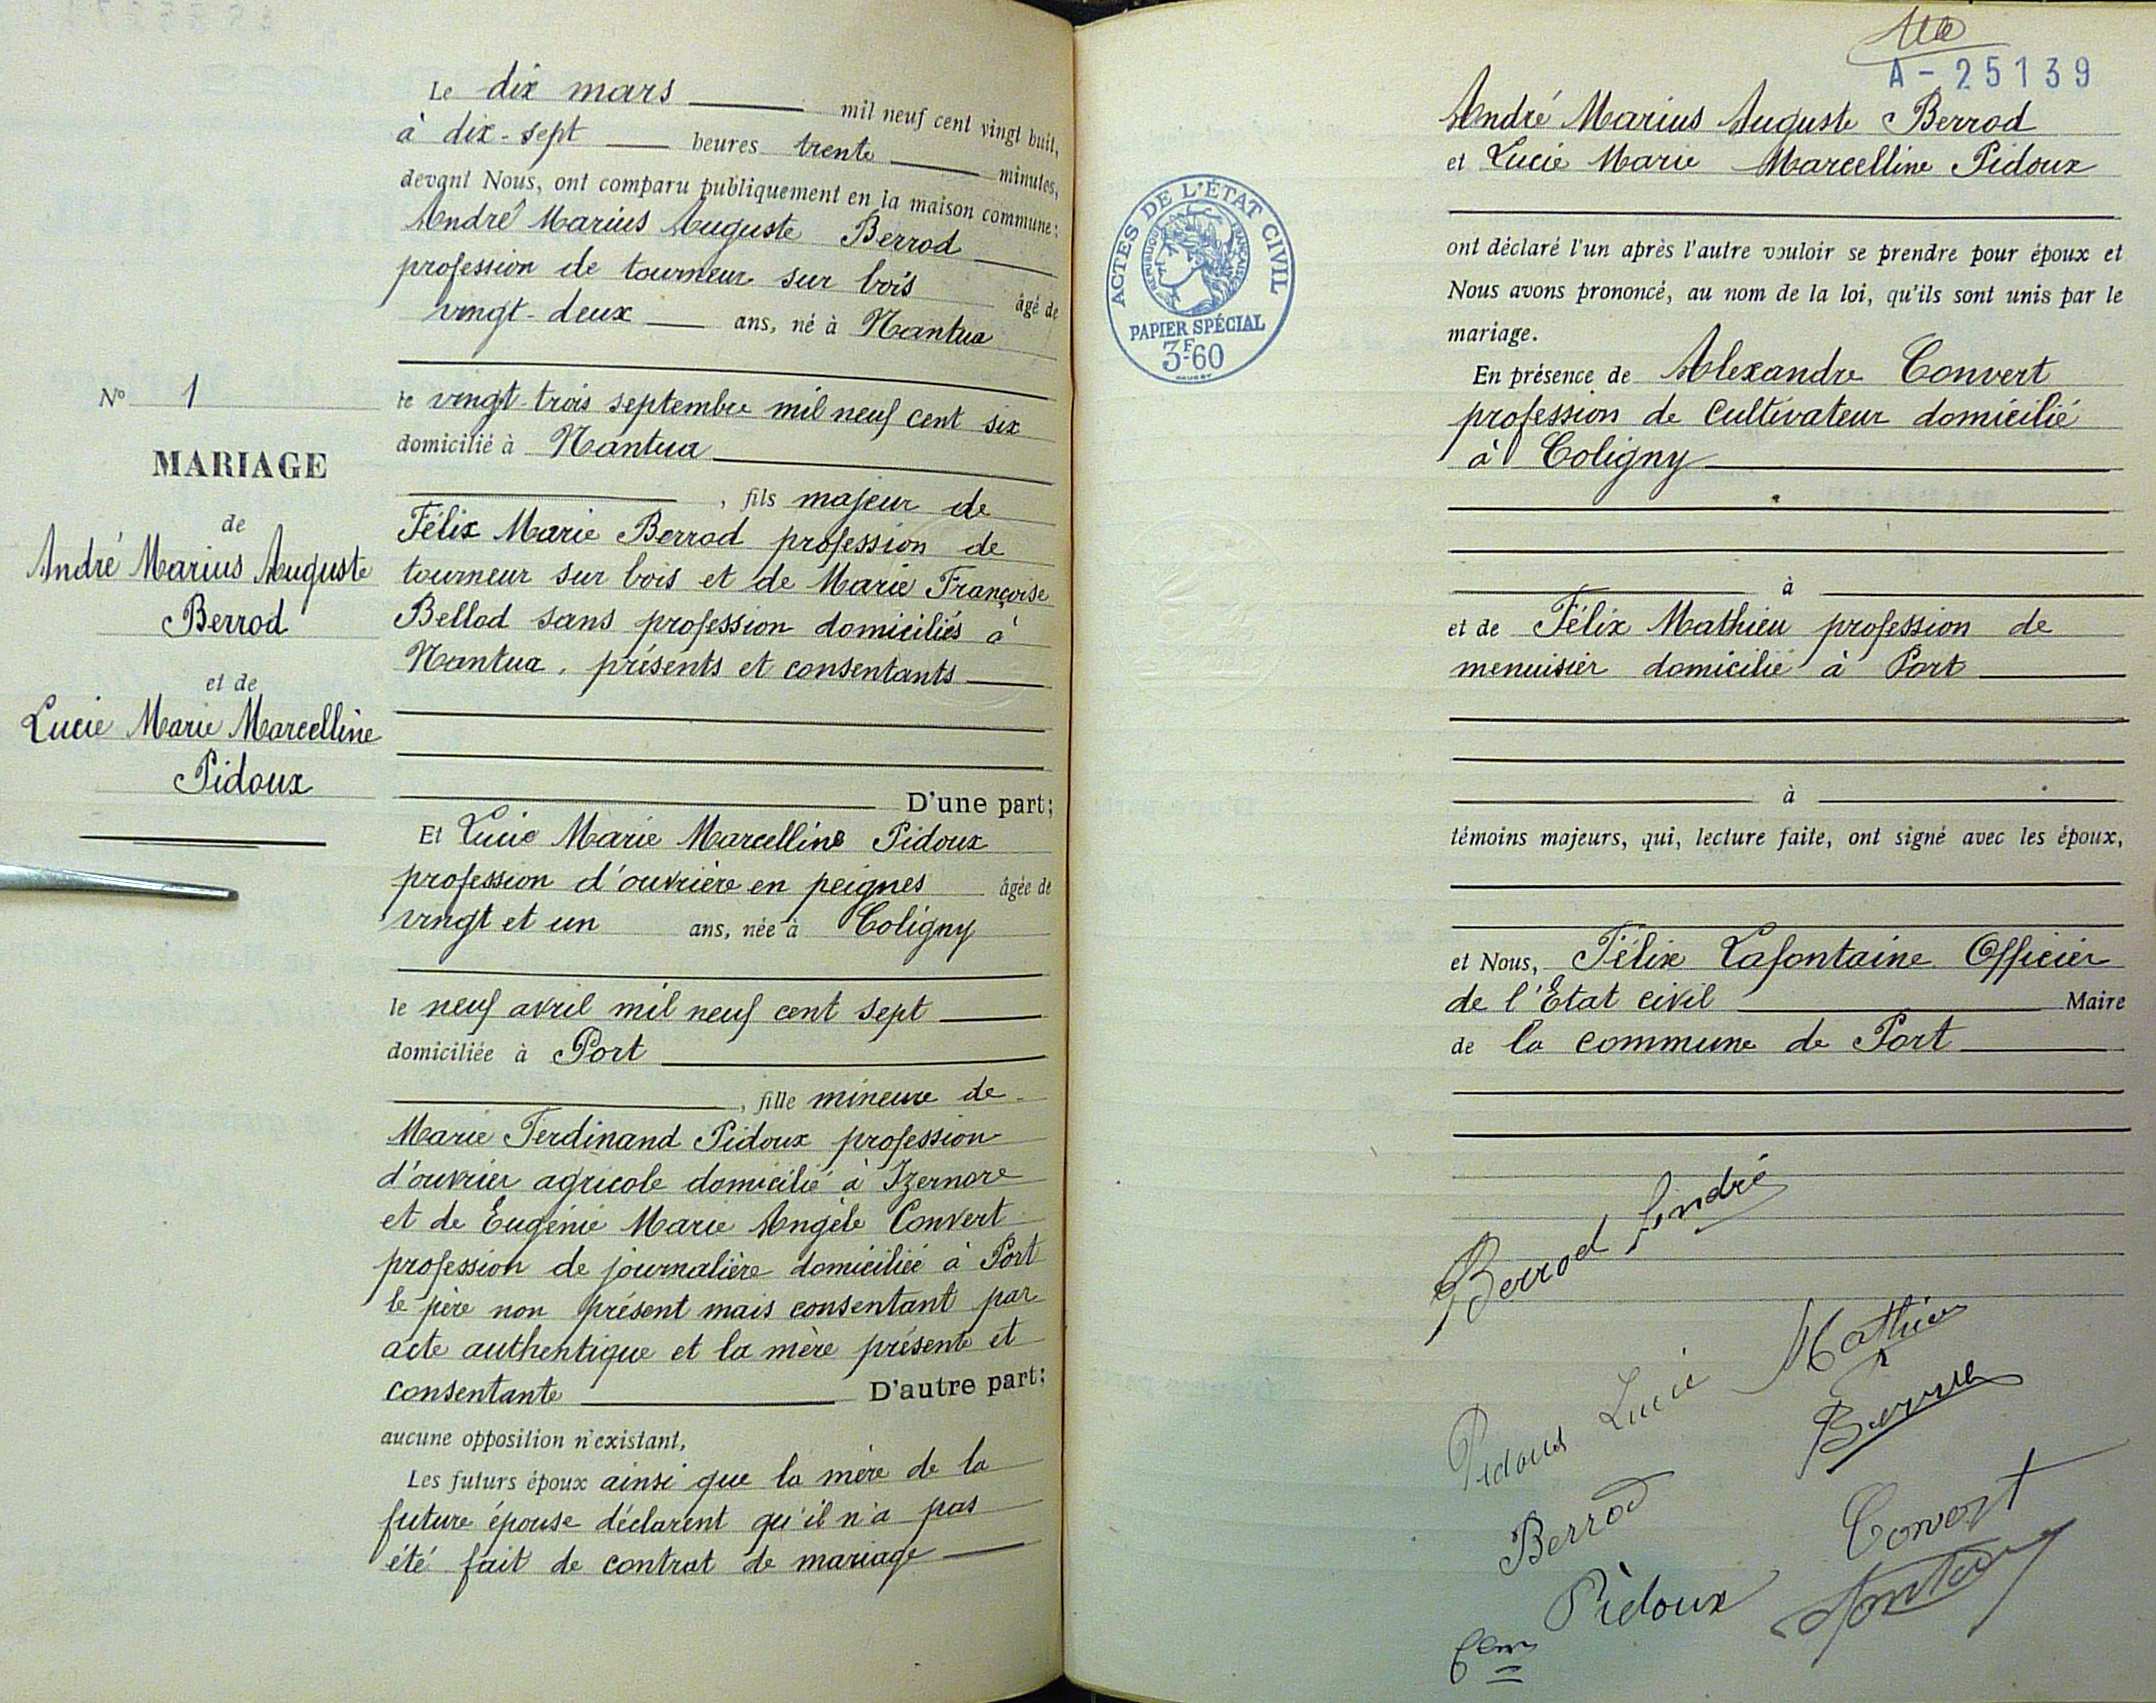 Le dix mars mil neuf cent vingt huit,
à dix-sept heures trente minutes,
devant Nous, ont comparu publiquement en la maison commune:
André Marius Auguste Berrod
profession de tourneur sur bois âgé de
vingt-deux ans, né à Nantua
le vingt-trois septembre mil neuf cent six
domicilié à Nantua
, fils majeur de
Félix Marie Berrod profession de
tourneur sur bois et de Marie Françoise
Bellod sans profession domiciliés à
Nantua, présents et consentants
D'une part;
Et Lucie Marie Marcelline Pidoux
profession d'ouvrière en peignes âgée de
vingt et un ans, née à Coligny
le neuf avril mil neuf cent sept
domiciliée à Port
, fille mineure de
Marie Ferdinand Pidoux profession
d'ouvrier agricole domicilié à Izernore
et de Eugénie Marie Angèle Convert
profession de journalière domiciliée à Port
le père non présent mais consentant par
acte authentique et la mère présente et
consentante D'autre part;
aucune opposition n'existant,
Les futurs époux ainsi que la mère de la
future épouse déclarent qu'il n'a pas
été fait de contrat de mariage
No 1
MARIAGE
de
André Marius Auguste
Berrod
et de
Lucie Marie Marcelline
Pidoux
A-25139
André Marius Auguste Berrod
et Lucie Marie Marcelline Pidoux
ACTES DE L'ÉTAT CIVIL
RÉPUBLIQUE FRANÇAISE
PAPIER SPÉCIAL
3F60
ont déclaré l'un après l'autre vouloir se prendre pour époux et
Nous avons prononcé, au nom de la loi, qu'ils sont unis par le
mariage.
En présence de Alexandre Convert
profession de cultivateur domicilié
à Coligny
à
et de Félix Mathieu profession de
menuisier domicilié à Port
à
témoins majeurs, qui, lecture faite, ont signé avec les époux,
et Nous, Félix Lafontaine Officier
de l'Etat civil Maire
de la commune de Port
Berrod André
Mathieu
Pidoux Lucie
Berrod
Convert
Pidoux